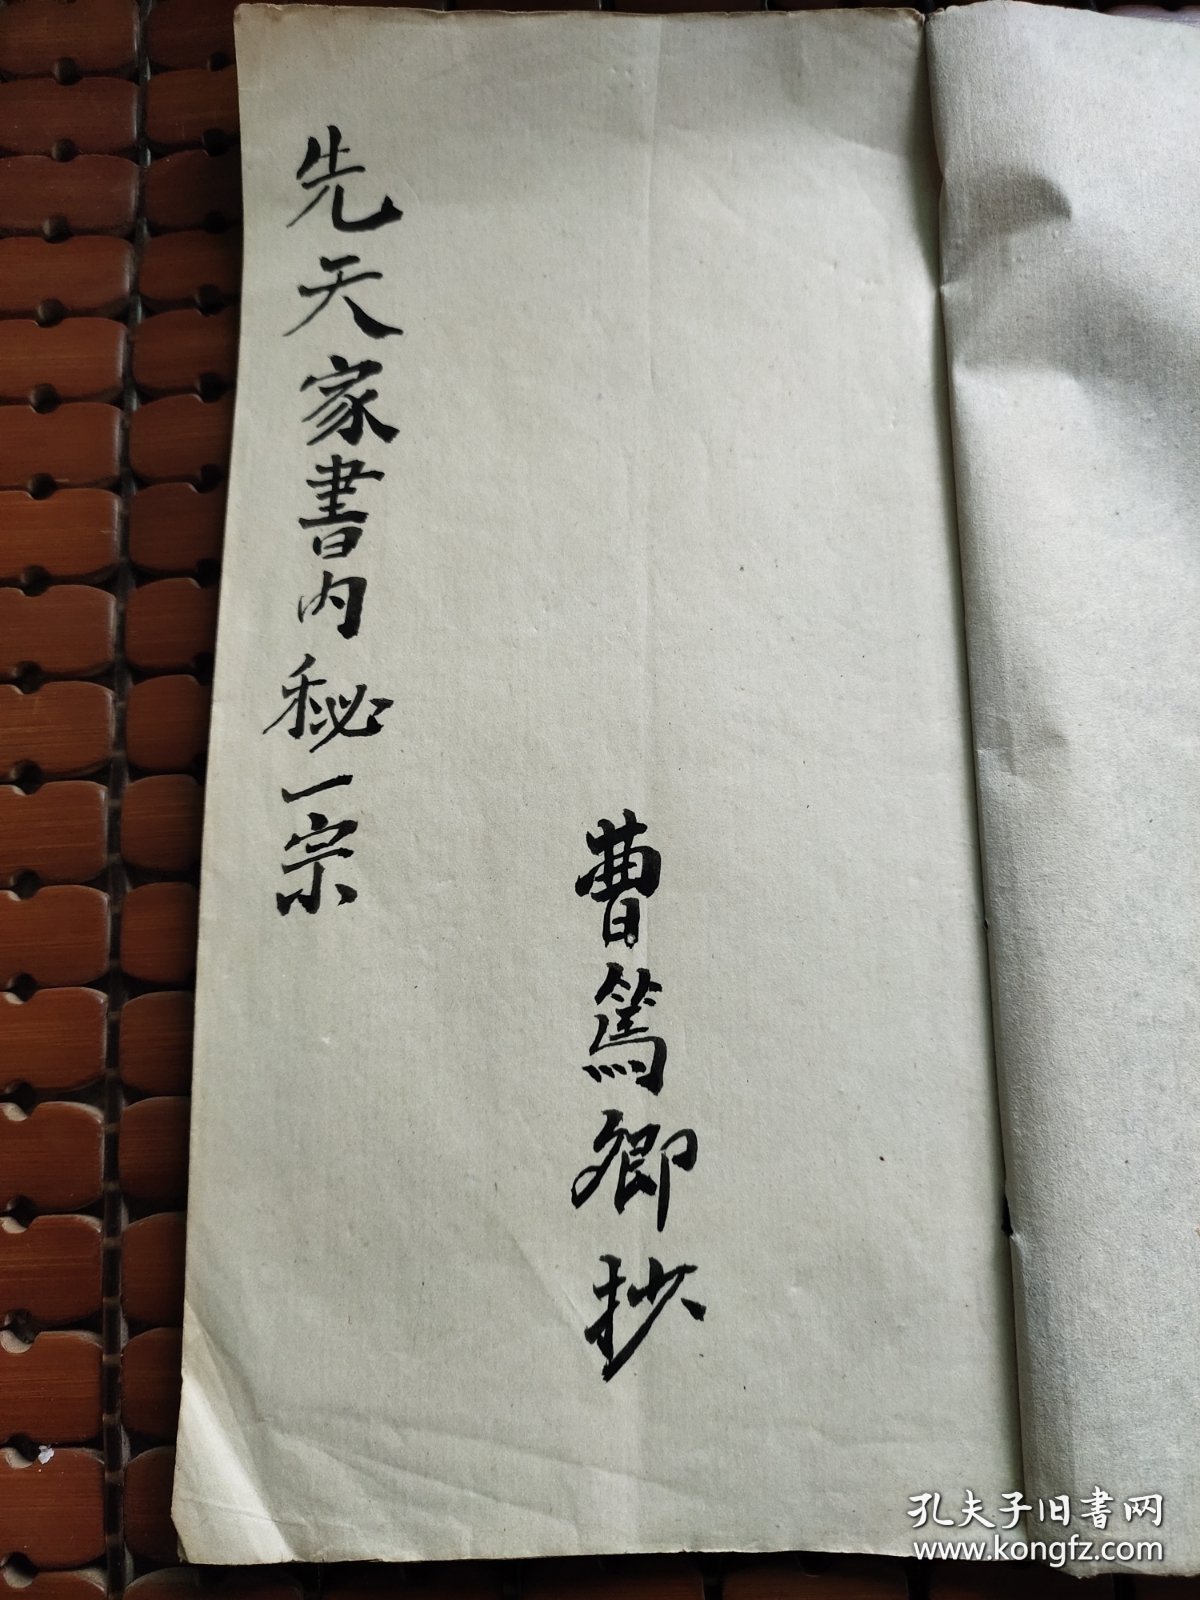 先天家書内秘一宗
曹篤卿抄
孔夫子旧书网
www.kongfz.com